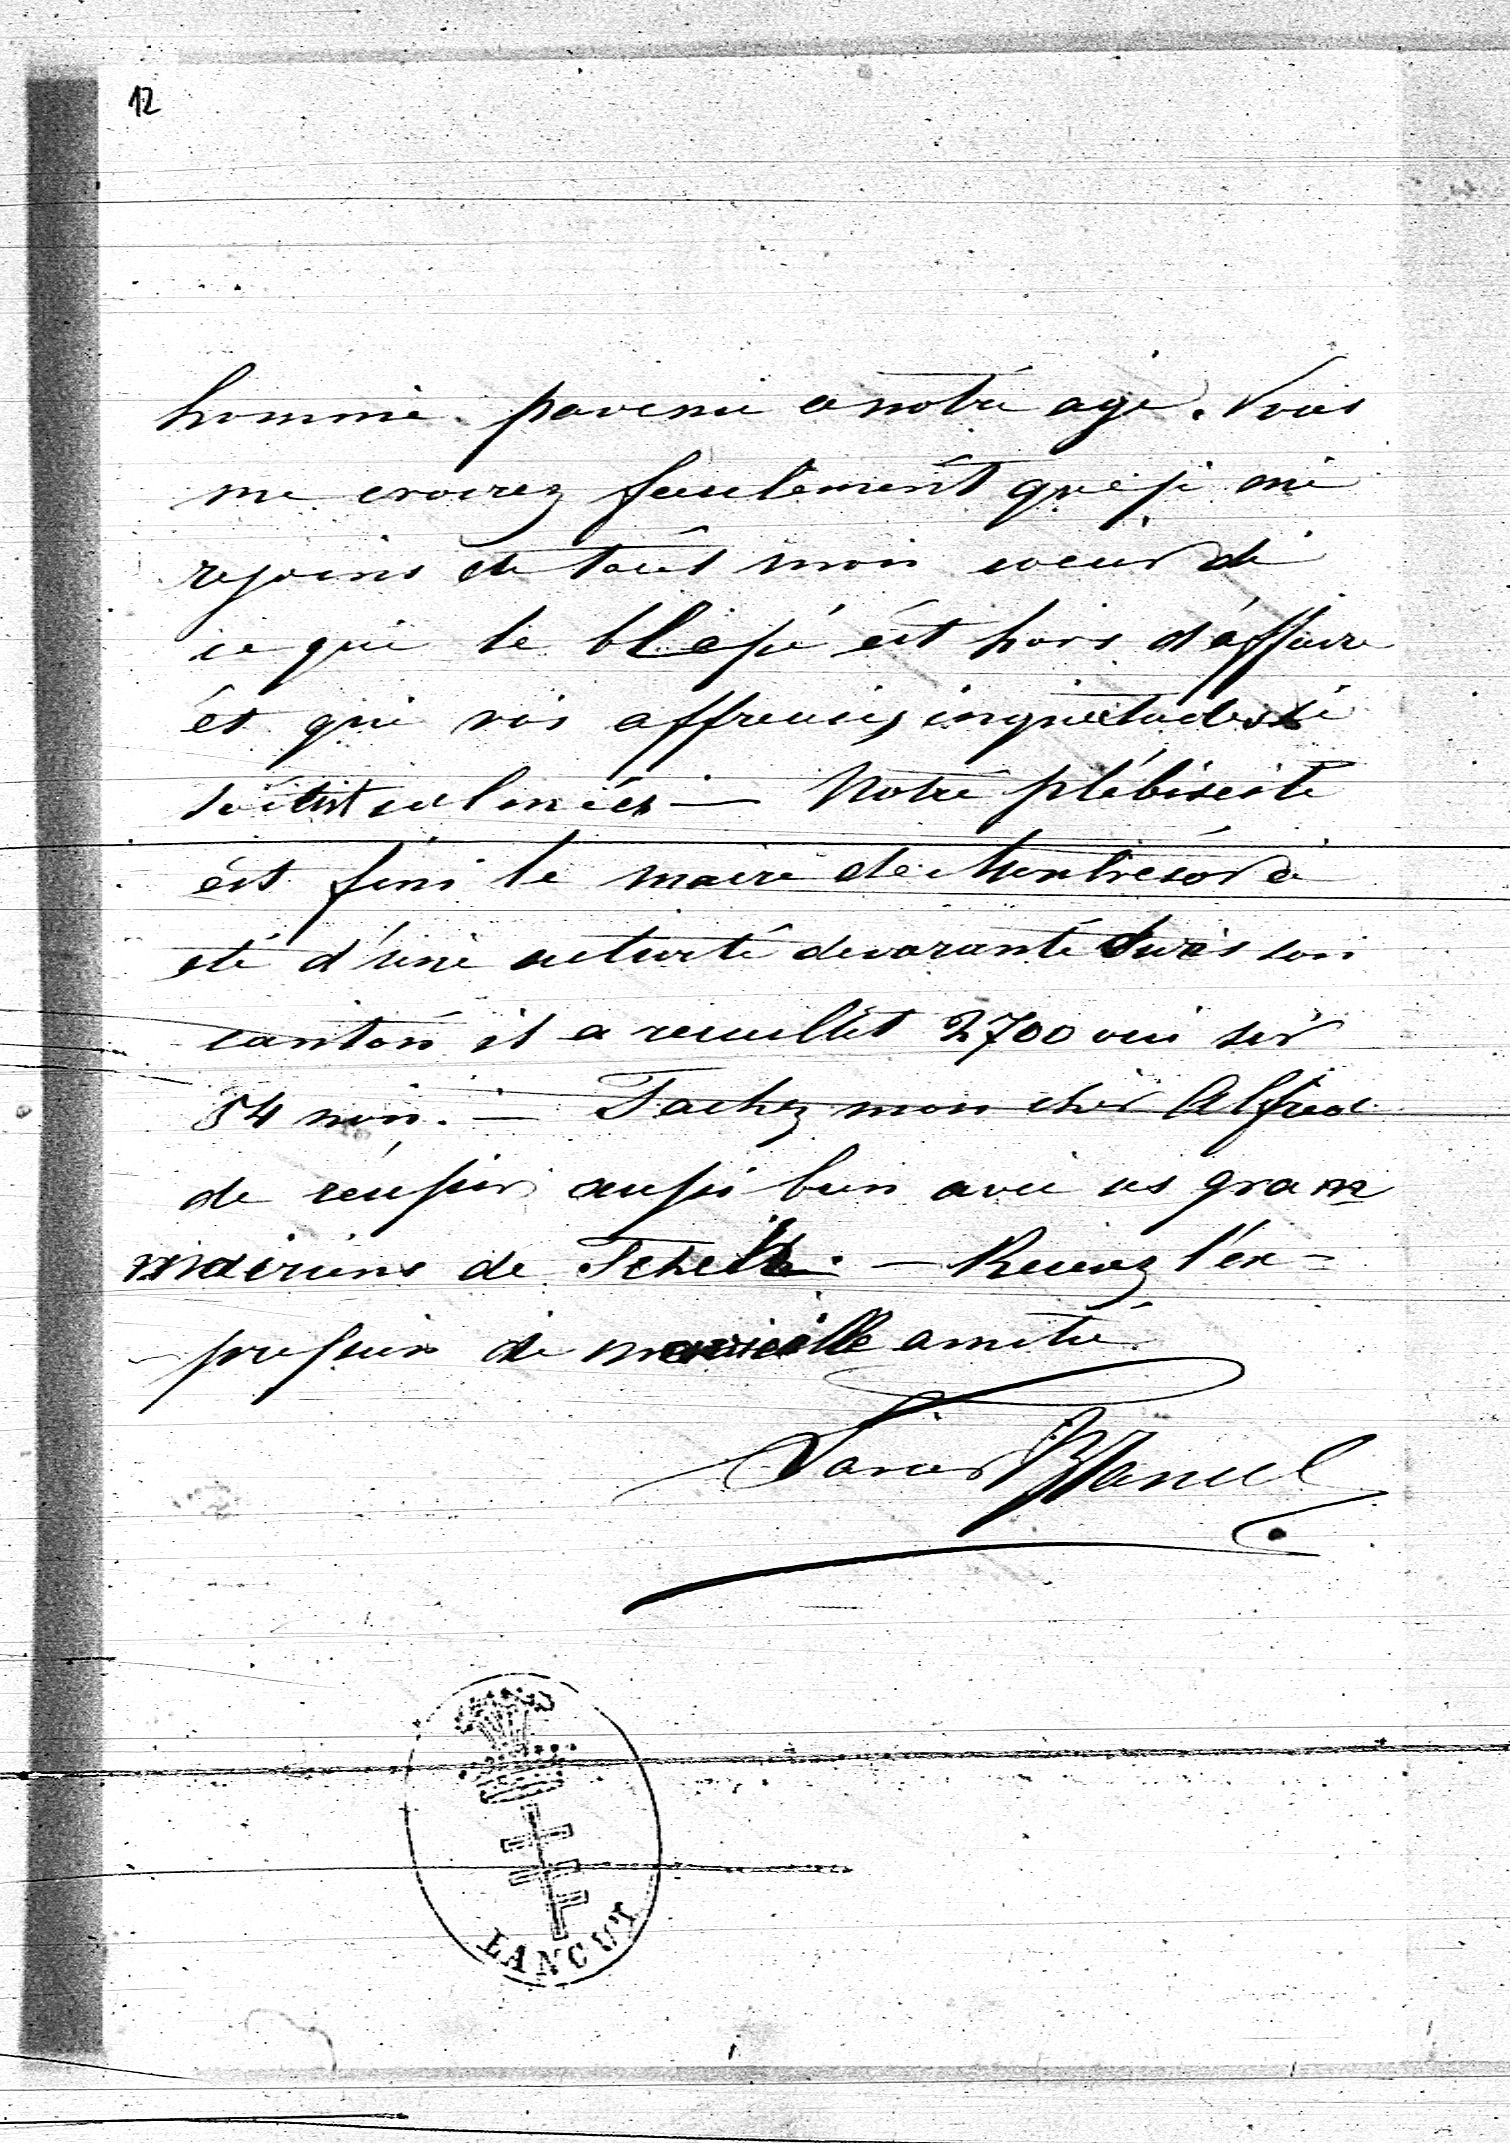 12
homme parvenu a notre age. Vous
me croirez facilement que je me
rejouis de tout mon coeur de
ce que le blessé est hors d'affaire
et que vos affreuses inquietudes se
soient calmées — Notre plébiscite
est fini le maire de Montresor a
eté d'une activité devorante dans son
canton il a recuillit 2700 oui sur
54 non. — Tachez mon cher Alfred
de réussir aussi bien avec vos gram
mairiens de — Recevez l'ex=
-pression de ma vieille amitié
Xavier Branicki
ŁAŃCUT